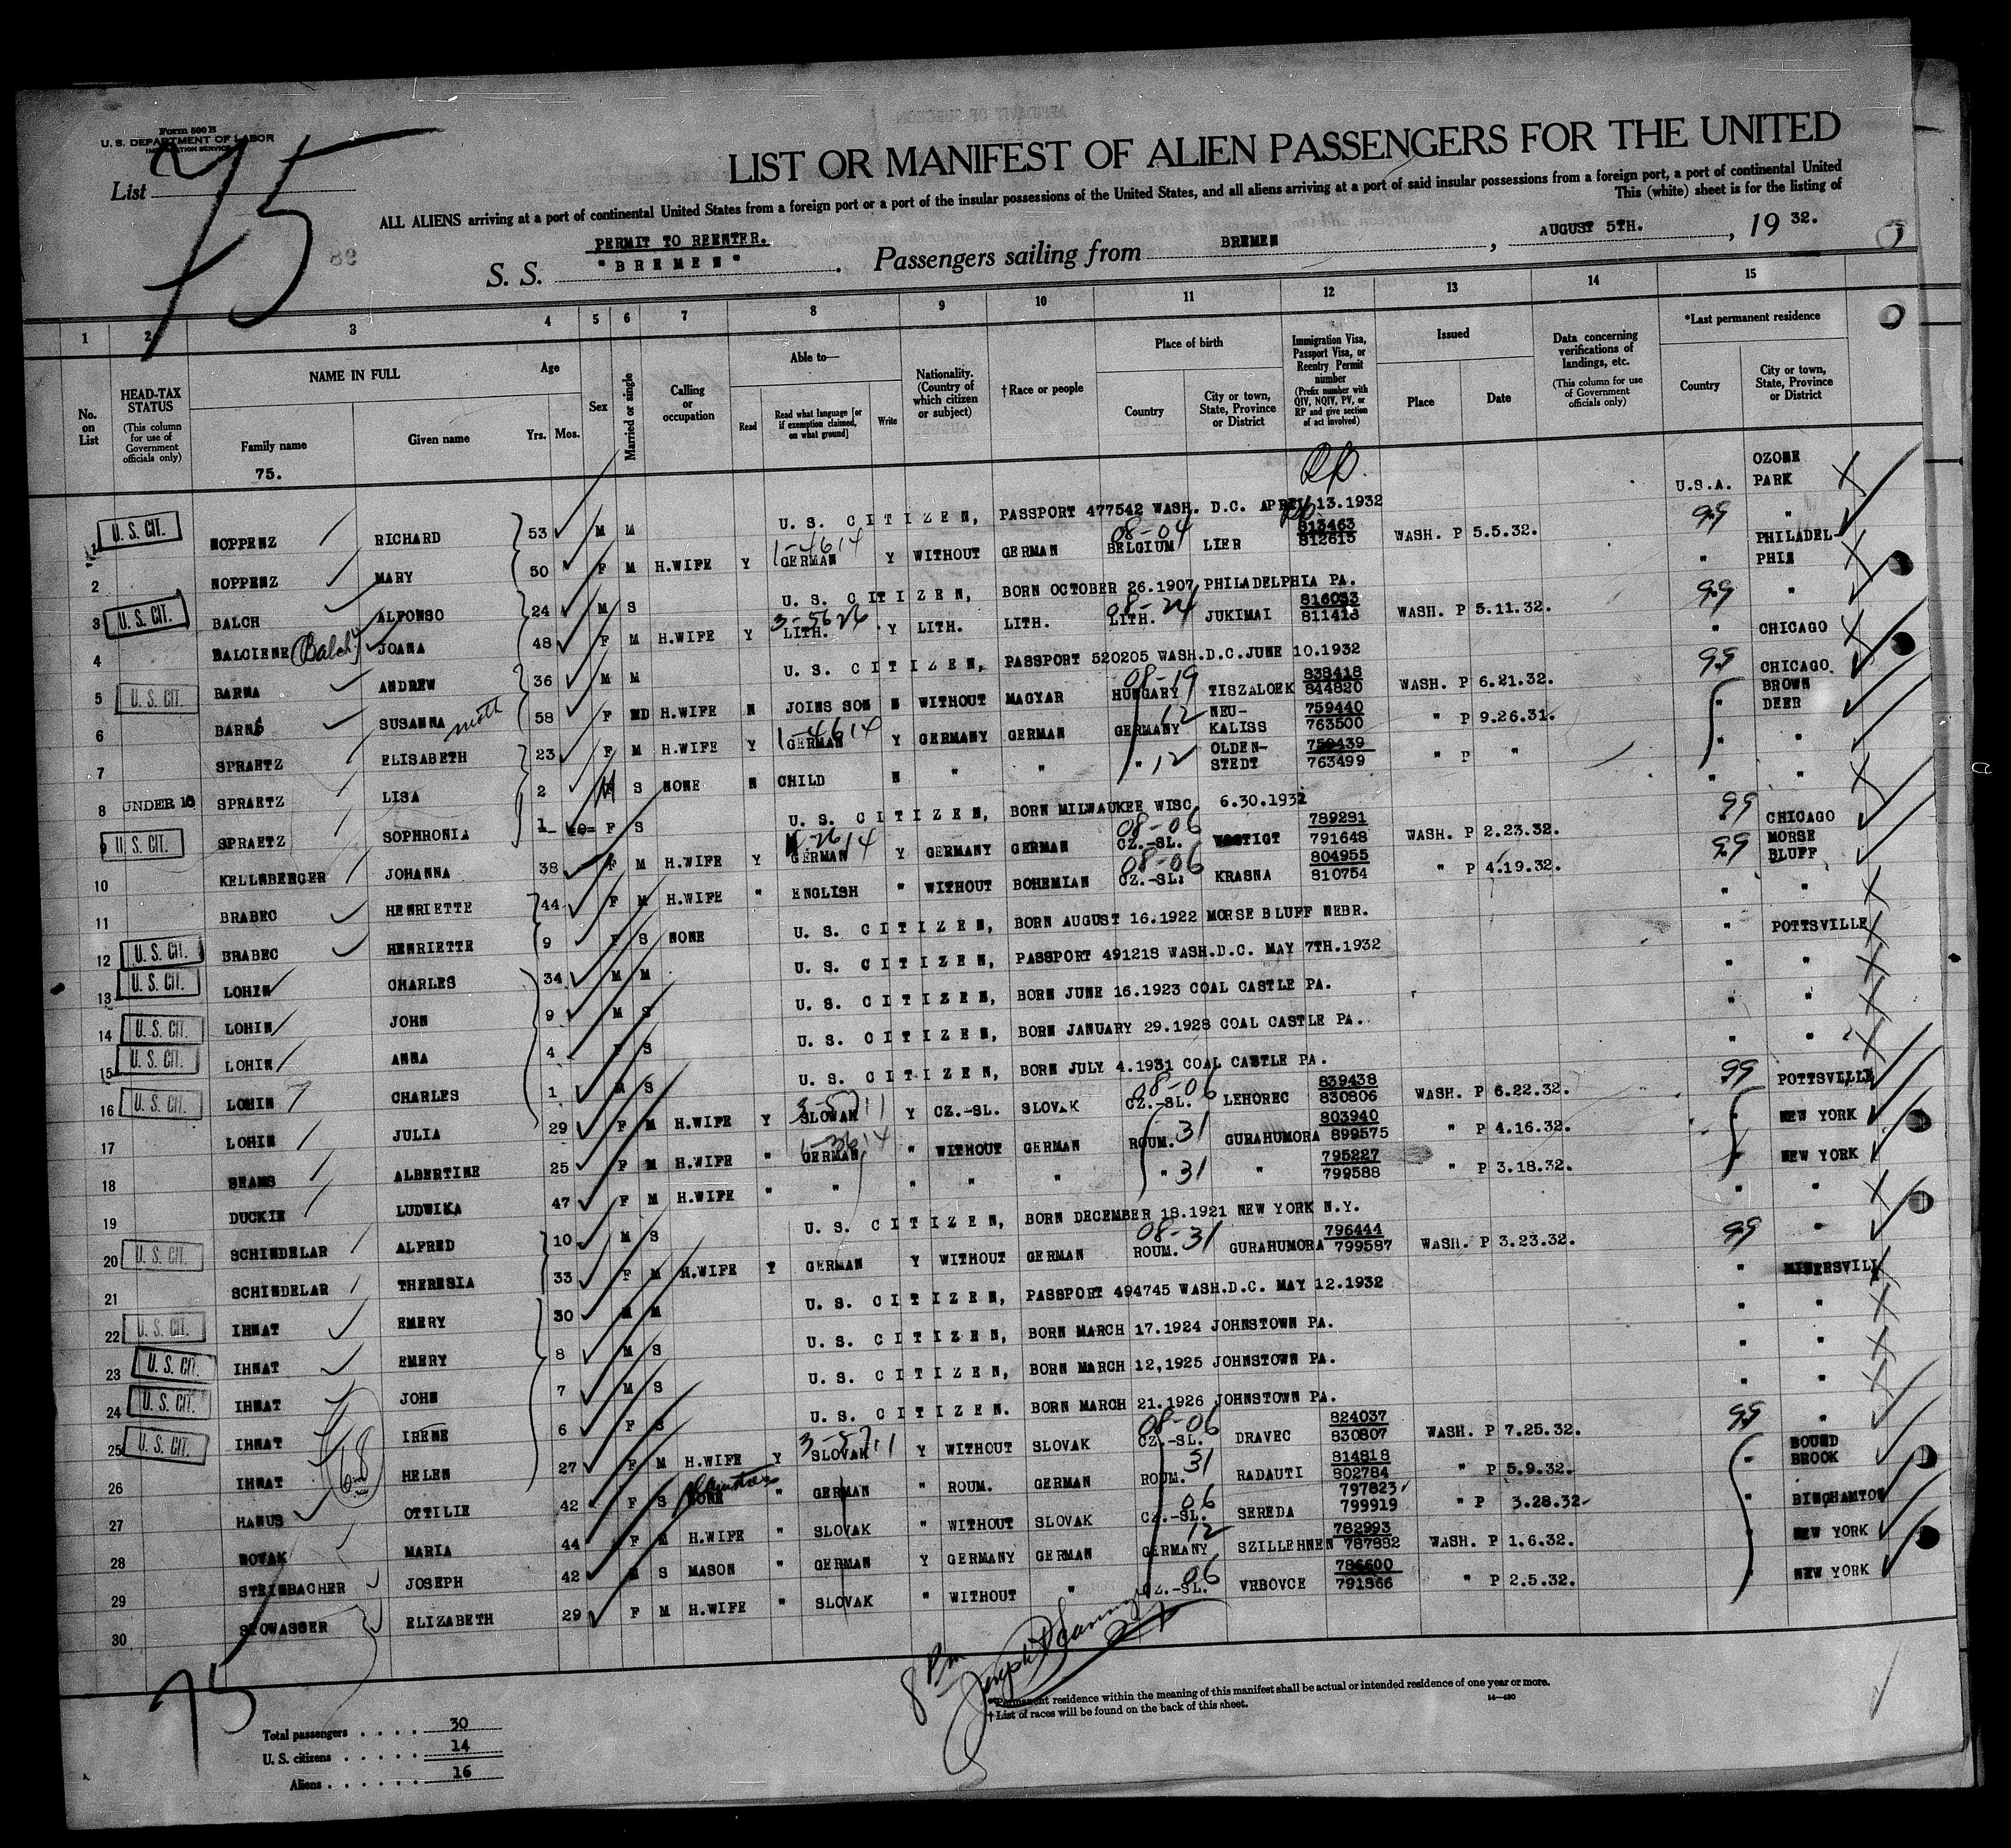 Form 500 B
U. S. DEPARTMENT OF LABOR
IMMIGRATION SERVICE
List 75
LIST OR MANIFEST OF ALIEN PASSENGERS FOR THE UNITED
ALL ALIENS arriving at a port of continental United States from a foreign port or a port of the insular possessions of the United States, and all aliens arriving at a port of said insular possessions from a foreign port, a port of continental United
This (white) sheet is for the listing of
PERMIT TO REENTER.
S. S. "BREMEN". Passengers sailing from BREMEN, AUGUST 5TH., 19 32.
98
1 2 3 4 5 6 7 8 9 10 11 12 13 14 15
No. on List
HEAD-TAX STATUS (This column for use of Government officials only)
NAME IN FULL Family name Given name
Age Yrs. Mos.
Sex
Married or single
Calling or occupation
Able to— Read Read what language [or if exemption claimed, on what ground] Write
Nationality. (Country of which citizen or subject)
† Race or people
Place of birth Country City or town, State, Province or District
Immigration Visa, Passport Visa, or Reentry Permit number (Prefix number with QIV, NQIV, PV, or RP and give section of act involved)
Issued Place Date
Data concerning verifications of landings, etc. (This column for use of Government officials only)
*Last permanent residence Country City or town, State, Province or District
75.
RP.
1 U. S. CIT. NOPPENZ RICHARD 53 M M U. S. CITIZEN, PASSPORT 477542 WASH. D.C. APRIL 13.1932 U.S.A. OZONE PARK
2 NOPPENZ MARY 50 F M H.WIFE Y 1-4614 GERMAN Y WITHOUT GERMAN 08-04 BELGIUM LIER 813463 812615 WASH. P 5.5.32. 99 "
3 U. S. CIT. BALCH ALFONSO 24 M S U. S. CITIZEN, BORN OCTOBER 26.1907 PHILADELPHIA PA. " PHILADEL-PHIA
4 BALCIENE (Balch) JOANA 48 F M H.WIFE Y 3-5626 LITH. Y LITH. LITH. 08-24 LITH. JUKIMAI 816083 811413 WASH. P 5.11.32. 99 "
5 U. S. CIT. BARNA ANDREW 36 M M U. S. CITIZEN, PASSPORT 520205 WASH.D.C. JUNE 10.1932 " CHICAGO
6 BARNA SUSANNA moth 58 F WD H.WIFE N JOINS SON N WITHOUT MAGYAR 08-19 HUNGARY TISZALOEK 838418 844820 WASH. P 6.21.32. 99 CHICAGO
7 SPRAETZ ELISABETH 23 F M H.WIFE Y 1-4614 GERMAN Y GERMANY GERMAN GERMANY 12 NEU-KALISS 759440 763500 " P 9.26.31. " BROWN DEER
8 UNDER 16 SPRAETZ LISA 2 S NONE N CHILD N " " " 12 OLDEN-STEDT 759439 763499 " P " " "
9 U. S. CIT. SPRAETZ SOPHRONIA 1 F S U. S. CITIZEN, BORN MILWAUKEE WISC. 6.30.1931 " "
10 KELLNBERGER JOHANNA 38 F M H.WIFE Y 2614 GERMAN Y GERMANY GERMAN 08-06 CZ.-SL. 789291 791648 WASH. P 2.23.32. 99 CHICAGO
11 BRABEC HENRIETTE 44 F M H.WIFE " ENGLISH " WITHOUT BOHEMIAN 08-06 CZ.-SL. KRASNA 804955 810754 " P 4.19.32. 99 MORSE BLUFF
12 U. S. CIT. BRABEC HENRIETTE 9 F S NONE U. S. CITIZEN, BORN AUGUST 16.1922 MORSE BLUFF NEBR. " "
13 U. S. CIT. LOHIN CHARLES 34 M M U. S. CITIZEN, PASSPORT 491218 WASH.D.C. MAY 7TH.1932 " POTTSVILLE
14 U. S. CIT. LOHIN JOHN 9 M S U. S. CITIZEN, BORN JUNE 16.1923 COAL CASTLE PA. " "
15 U. S. CIT. LOHIN ANNA 4 F S U. S. CITIZEN, BORN JANUARY 29.1928 COAL CASTLE PA. " "
16 U. S. CIT. LOHIN CHARLES 1 M S U. S. CITIZEN, BORN JULY 4.1931 COAL CASTLE PA. " "
17 LOHIN JULIA 29 F M H.WIFE Y 3-5711 SLOVAK Y CZ.-SL. SLOVAK 08-06 CZ.-SL. LEHOREC 839438 830806 WASH. P 6.22.32. 99 POTTSVILLE
18 BEAMS ALBERTINE 25 F M H.WIFE " 1-3614 GERMAN " WITHOUT GERMAN ROUM. 31 GURAHUMORA 803940 899575 " P 4.16.32. " NEW YORK
19 DUCKIE LUDWIKA 47 F M H.WIFE " " " " " " 31 " 795227 799588 " P 3.18.32. " NEW YORK
20 U. S. CIT. SCHINDELAR ALFRED 10 M S U. S. CITIZEN, BORN DECEMBER 18.1921 NEW YORK N.Y. " "
21 SCHINDELAR THERESIA 33 F M H.WIFE Y GERMAN Y WITHOUT GERMAN 08-31 ROUM. GURAHUMORA 796444 799587 WASH. P 3.23.32. 99 "
22 U. S. CIT. IHNAT EMERY 30 M M U. S. CITIZEN, PASSPORT 494745 WASH.D.C. MAY 12.1932 " MINERSVILL
23 U. S. CIT. IHNAT EMERY 8 M S U. S. CITIZEN, BORN MARCH 17.1924 JOHNSTOWN PA. " "
24 U. S. CIT. IHNAT JOHN 7 M S U. S. CITIZEN, BORN MARCH 12,1925 JOHNSTOWN PA. " "
25 U. S. CIT. IHNAT IRENE 6 F S U. S. CITIZEN. BORN MARCH 21.1926 JOHNSTOWN PA. " "
26 IHNAT HELEN 27 F M H.WIFE Y 3-5711 SLOVAK Y WITHOUT SLOVAK 08-06 CZ.-SL. DRAVEC 824037 830807 WASH. P 7.25.32. 99 "
68
27 HANUS OTTILIE 42 F S NONE " GERMAN " ROUM. GERMAN ROUM. 31 RADAUTI 814818 802784 " P 5.9.32. " BOUND BROOK
28 NOVAK MARIA 44 F M H.WIFE " SLOVAK " WITHOUT SLOVAK CZ.-SL. 06 SEREDA 797823 799919 " P 3.28.32 " BINGHAMTON
29 STEINBACHER JOSEPH 42 M S MASON " GERMAN Y GERMANY GERMAN GERMANY 12 SZILLEHNEN 782993 787882 WASH. P 1.6.32. " NEW YORK
30 SCHWASSER ELIZABETH 29 F M H.WIFE " SLOVAK " WITHOUT " CZ.-SL. 06 VRBOVCE 786600 791866 " P 2.5.32. " NEW YORK
75
8 Pm
Joseph
*Permanent residence within the meaning of this manifest shall be actual or intended residence of one year or more.
† List of races will be found on the back of this sheet.
14—430
Total passengers . . . . 30
U. S. citizens . . . . . 14
Aliens . . . . . . 16